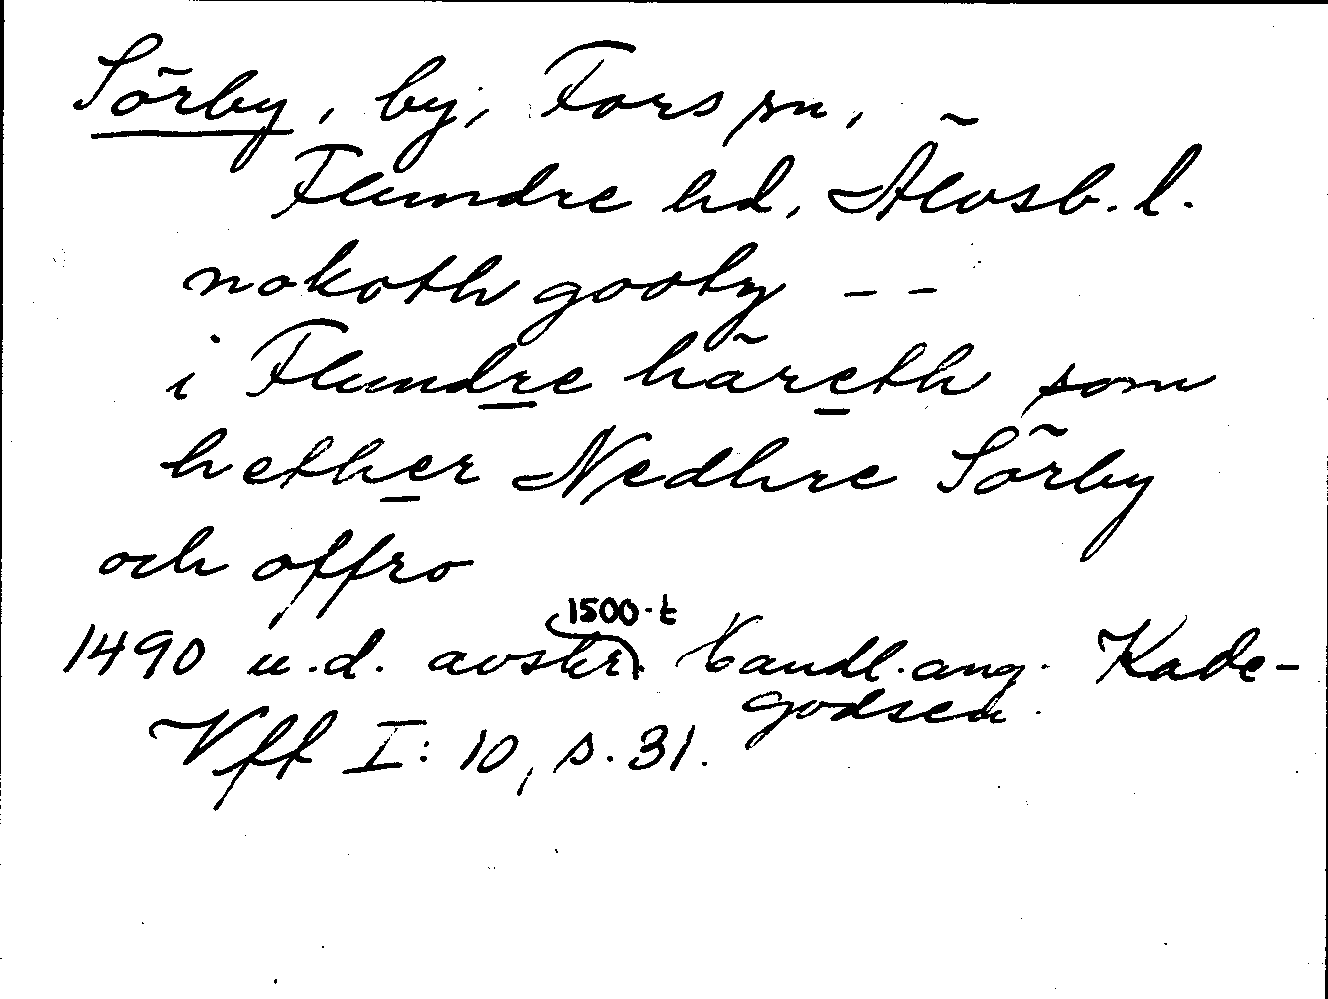 Sörby, by, Fors sn,
Flundre hd, Älvsb. l.
nokoth gootz - -
i Flundre häreth som
hether Nedhre Sörby
och offro
1500-t
1490 u.d. avskr. Handl. ang. Kade-
godsen.
Vff I: 10, s. 31.